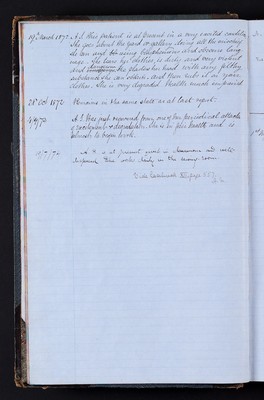 19th March 1872 A.S. this patient is at present in a very excited condition
She runs about the yard or gallery doing all the mischief
she can and using blasphemous and obscene lang-
uage. She tears her clothes, is dirty and very violent
and she plasters her head with any filthy
substance she can obtain and then rubs it on your
clothes. She is very degraded. Health much impaired
28th Oct 1872 Remains in the same state as at last report.
4/9/73 A.S. Has just recovered from one of her periodical attacks
of excitement & degradation. She is in fair health and is
about to begin work.
A. S. is at present quiet in demeanour and well
She works daily in the room.
Vide Casebook page